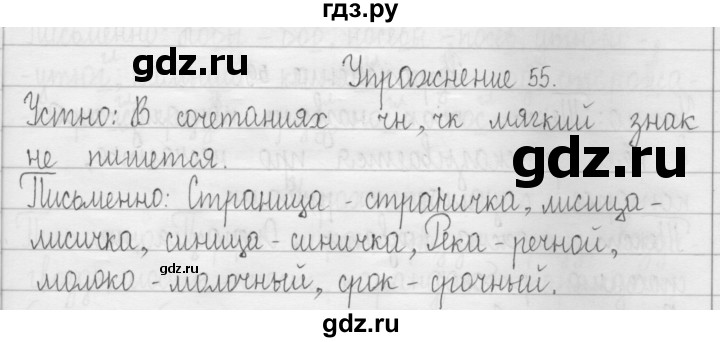 гдз.ру
gdz.ru
Упражнение 55.
Устно: В сочетаниях чн, чк мягкий знак
не пишется.
Письменно: Страница - страничка, лисица -
лисичка, синица - синичка, Река - речной,
gdz.ru
молоко - молочный, срок - срочный.
gdz.ru
gdz.ru